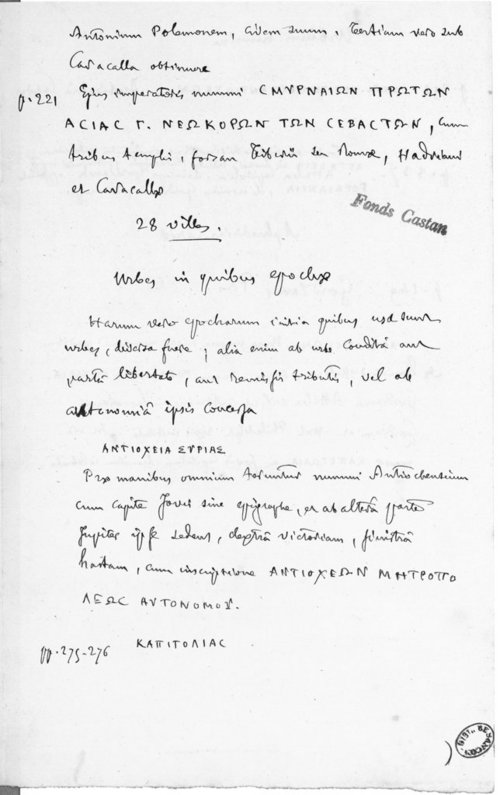 Antonium Polemonem, civem suum. Tertiam vero sub
Caracalla obtinuere
p. 221 Ejus imperatoris nummi CΜΥΡΝΑΙΩΝ ΠΡΩΤΩΝ
ΑCΙΑC Γ. ΝΕΩΚΟΡΩΝ ΤΩΝ CΕΒΑCΤΩΝ, cum
tribus templis, forsan Tiberii seu Romæ, Hadriani
et Caracallæ
Fonds Castan
28 villes.
Urbes in quibus epochæ
Harum vero epocharum initia quibus usæ sunt
urbes, diversa fuere ; alia enim ab urbe conditâ aut
partâ libertate, aut remissis tributis, vel ab
autonomiâ ipsis concessa
ΑΝΤΙΟΧΕΙΑ ΣΥΡΙΑΣ
Præ manibus omnium teruntur nummi Antiochensium
cum capite Jovis sine epigraphe, et ab alterâ parte
Jupiter ipse sedens, dextrâ victoriam, sinistrâ
hastam, cum inscriptione ΑΝΤΙΟΧΕΩΝ ΜΗΤΡΟΠΟ
ΛΕΩC ΑΥΤΟΝΟΜΟΥ.
pp. 275-276 ΚΑΠΙΤΟΛΙΑC